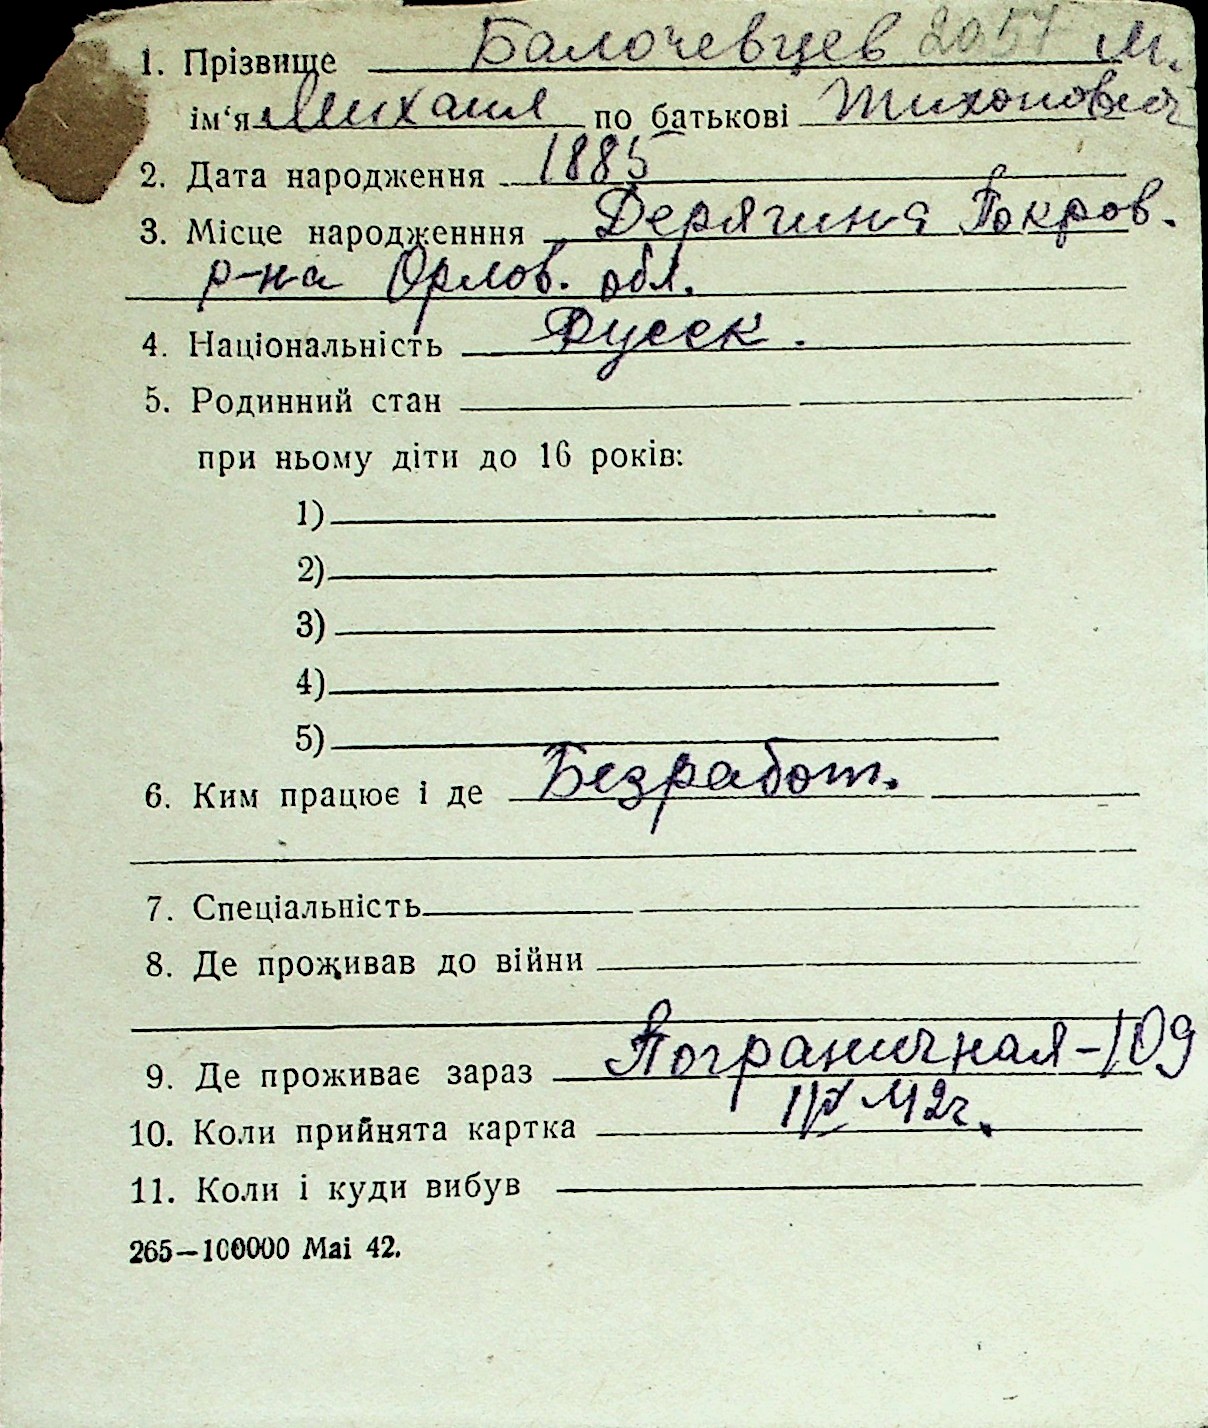 1. Прізвище Балочевцев 2057 М.
ім‘я Михаил по батькові Тихонович
2. Дата народження 1885
3. Місце народженння Дерягина Покров.
р-на Орлов. обл.
4. Національність Русск.
5. Родинний стан
при ньому діти до 16 років:
1)
2)
3)
4)
5)
6. Ким працює і де Безработ.
7. Спеціальність
8. Де проживав до війни
9. Де проживає зараз Пограничная-109
10. Коли прийнята картка 42г.
11. Коли і куди вибув
265—100000 Mai 42.